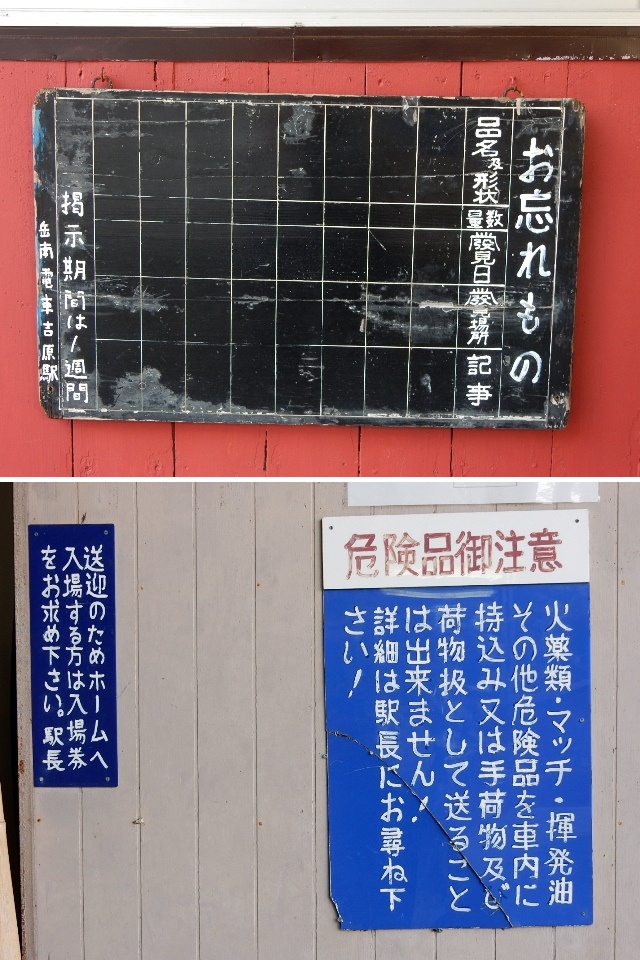 お忘れもの
品名及形状
数量
發見日
發見場所
記事
掲示期間は1週間
岳南電車吉原駅
危険品御注意
火薬類・マッチ・揮発油
その他危険品を車内に
持込み又は手荷物及び
荷物扱として送ること
は出来ません!
詳細は駅長にお尋ね下
さい!
送迎のためホームへ
入場する方は入場券
をお求め下さい。駅長